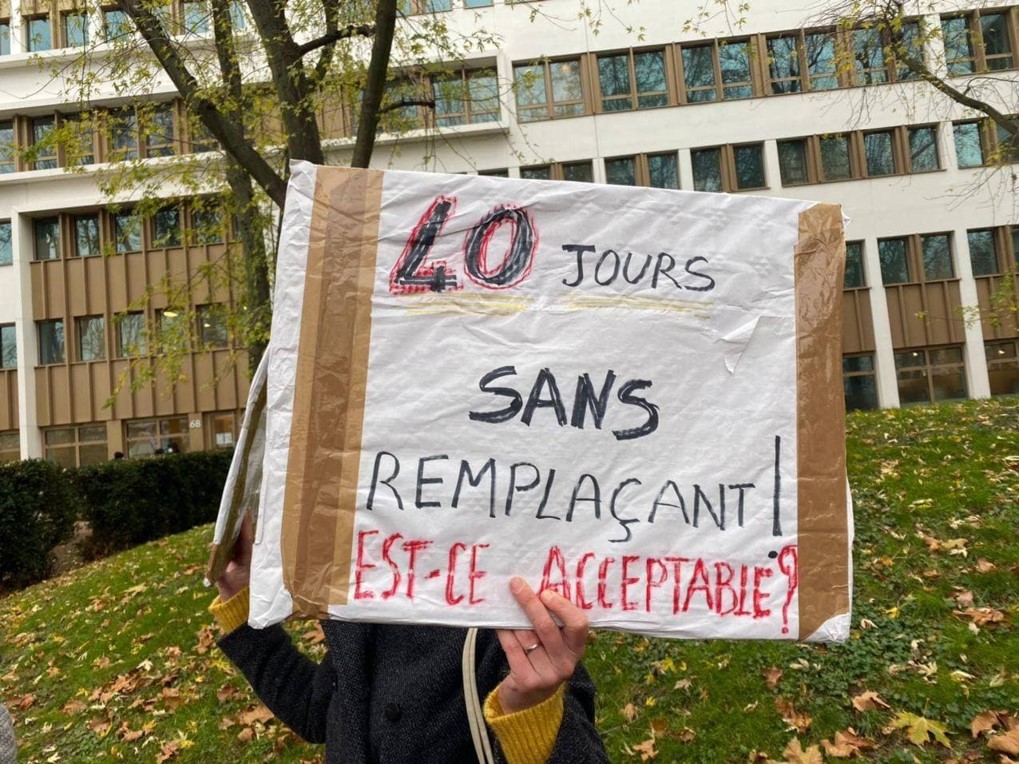 40 JOURS
SANS
REMPLAÇANT!
EST-CE ACCEPTABLE?
6B